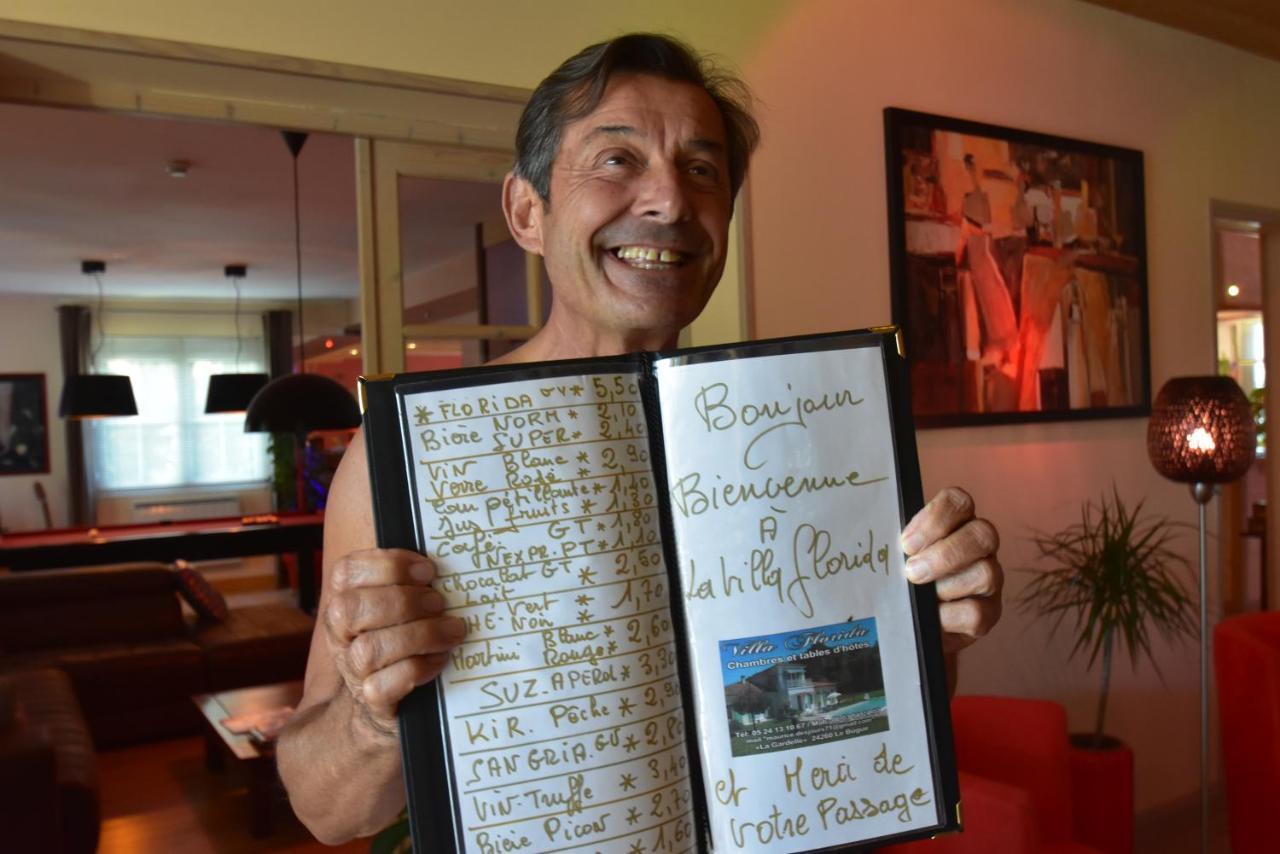 * FLORIDA GV * 5,50
Bière NORM * 2,10
SUPER * 2,40
Vin Blanc * 2,90
Verre Rosé *
Eau pétillante * 1,40
Jus fruits * 1,80
Café GT * 1,80
NEXPR. PT * 1,10
Chocolat GT * 2,50
Lait
THÉ Vert * 1,70
Noir
Martini Blanc * 2,60
Rouge *
SUZ. APEROL * 3,30
KIR. Pêche * 2,90
SANGRIA. GV * 2,80
VIN-Truffe * 3,40
Bière Picon * 2,70
* 1,60
Bonjour
Bienvenue
À
La Villa Florida
Villa Florida
Chambres et tables d'hôtes
Tél: 05 24 13 10 67 /
mail "maurice.desjours71@gmail.com
«La Gardelle» 24260 Le Bugue
et Merci de
votre Passage